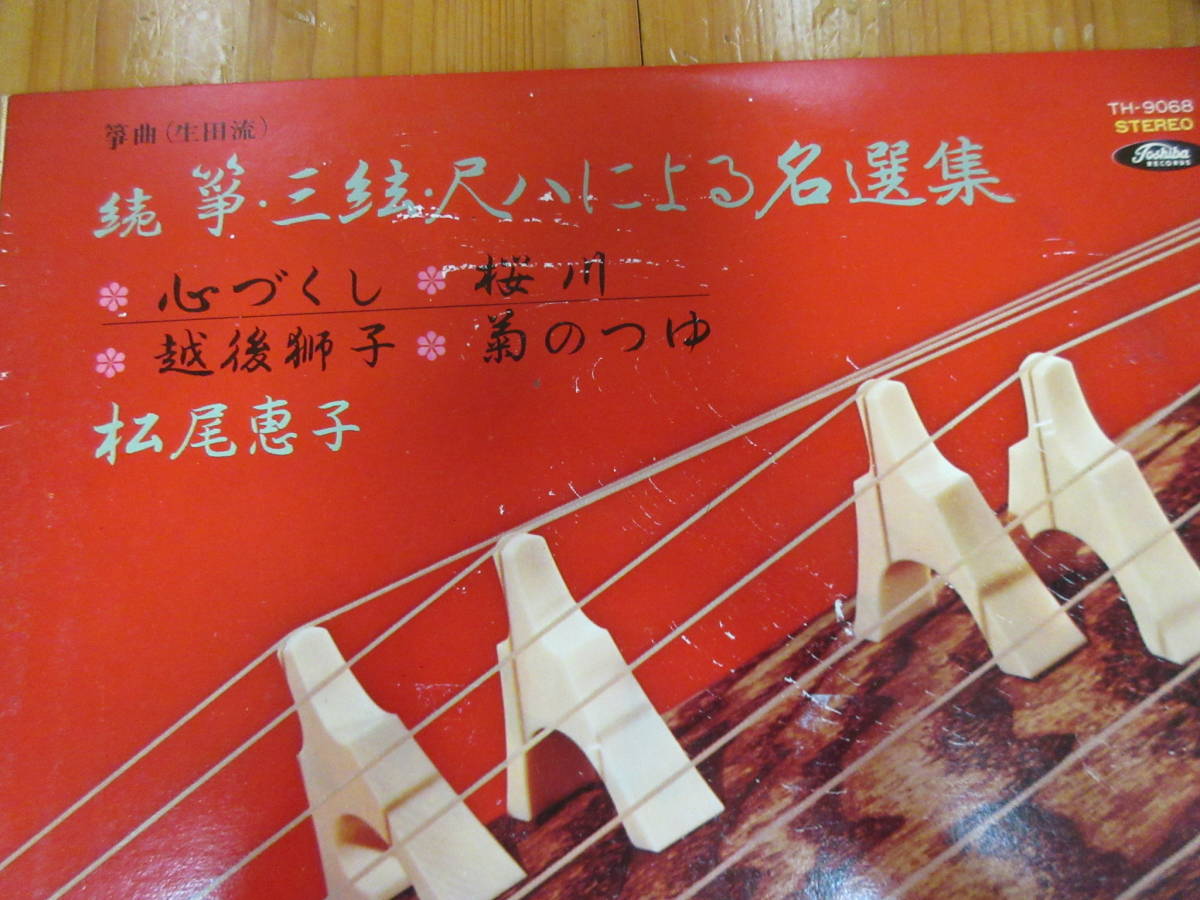 箏曲(生田流)
TH-9068
STEREO
Toshiba
RECORDS
続 箏・三絃・尺八による名選集
心づくし 桜川
越後獅子 菊のつゆ
松尾恵子